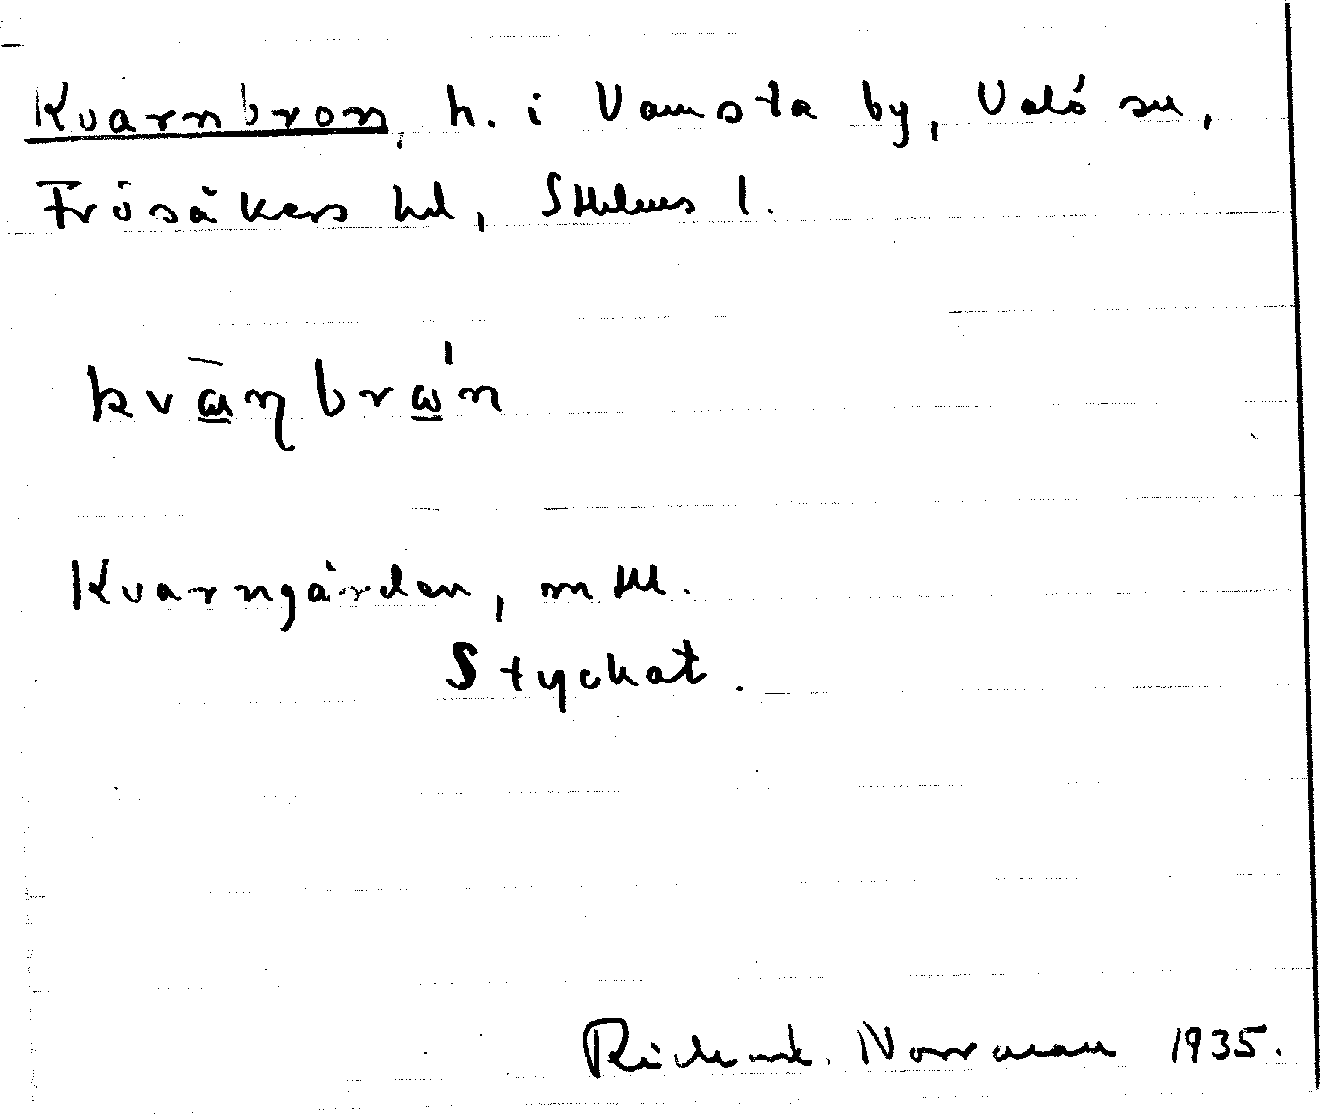 Kvarnbron, h. i Vamsta by, Valö sn,
Frösåkers hd, Sthlms l.
kvāṇbrán
Kvarngården, mtl.
Styckat.
Richard Norrman 1935.